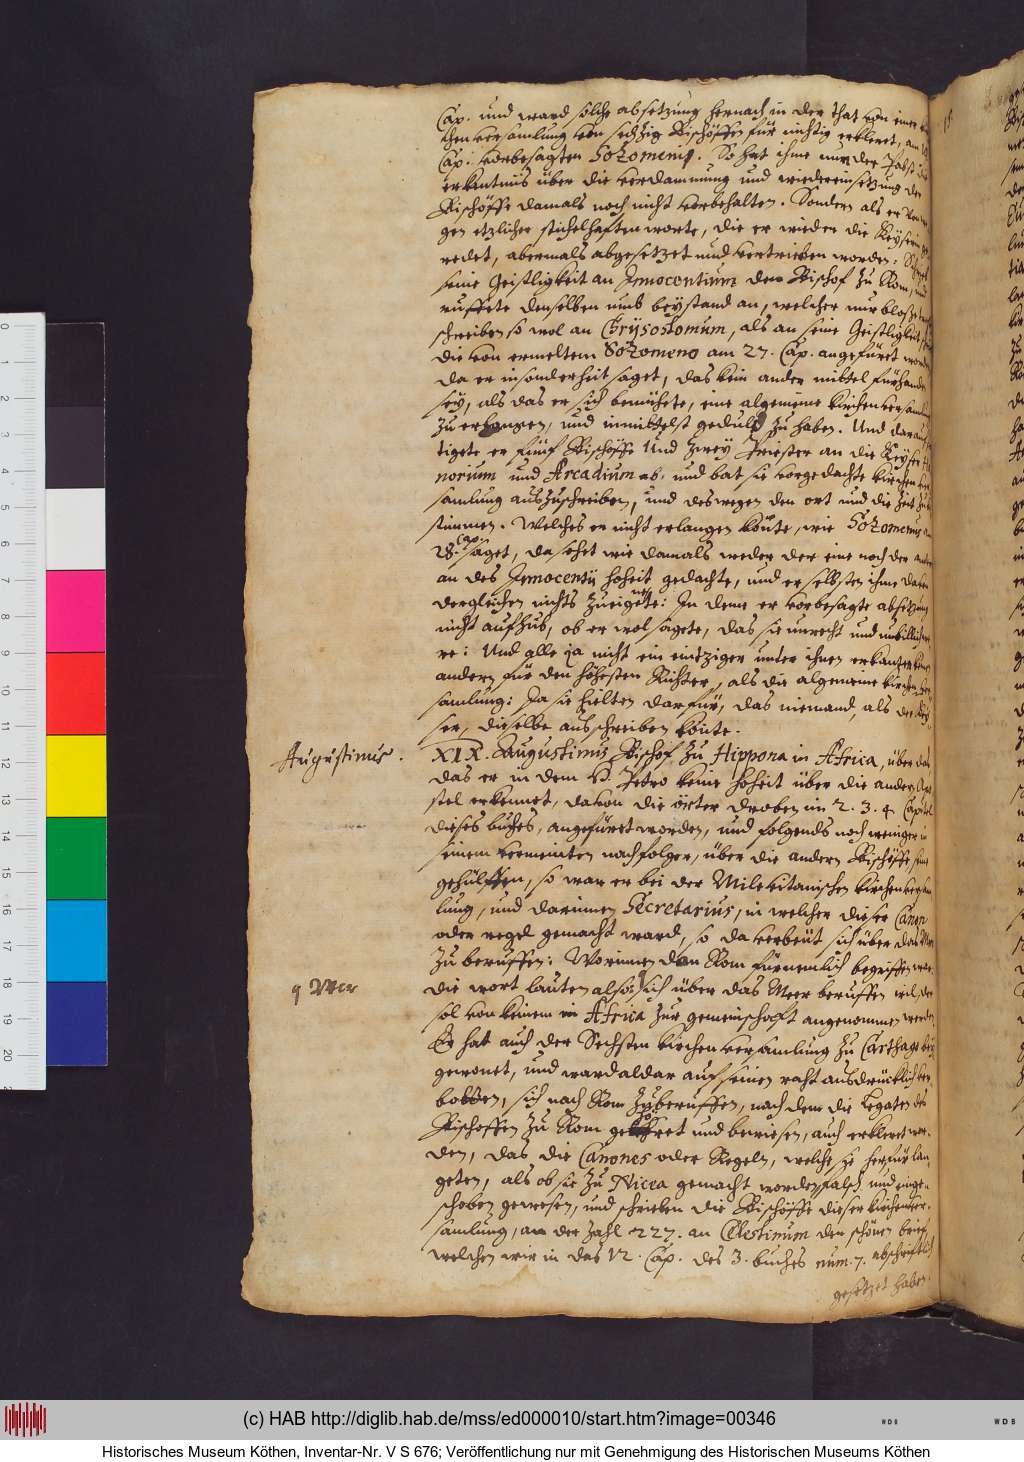 Cap. und ward solche absetzung hernach in der that von einer
chen versamlung von sechzig Bischöffen für nichtig erkleret, am
Cap. vorbesagten Sozomenis. So hat ihme nun der Pabst die
erkantnis über die verdammung und wiedereinsetzung der
Bischöffe damals noch nicht vorbehalten. Sondern als er
gen etzlicher stichelhaften worte, die er wieder die Keyserin
redet, abermals abgesetzet und vertrieben worden: Schrieb
seine Geistligkeit an Innocentium den Bischof zu Rom, und
ruffete denselben umb beystand an, welcher nur blos
schreiben so wol an Chrysostomum, als an seine Geistligkeit,
die von ermeltem Sozomeno am 27. Cap. angefüret worden
da er insonderheit saget, das kein ander mittel fürhanden
sey, als das er sich bemühete, eine algemeine kirchenversamlung
zu erlangen, und inmittelst gedult zu haben. Und darauf
tigete er fünf Bischöffe und zwey Priester an die Keyser Ho
norium und Arcadium ab, und bat sie vorgedachte kirchen ver
samlung auszuschreiben, und deswegen den ort und die Zeit zu
stimmen. Welches er nicht erlangen könte, wie Sozomenus am
28. Cap. saget, da sehet wie damals weder der eine noch der ander
an des Innocentij hoheit gedachte, und er selbsten ihme davon
dergleichen nichts zueignete: In deme er vorbesagte absetzung
nicht aufhub, ob er wol sagete, das sie unrecht und unbillich
re: Und alle ja nicht ein eintziger unter ihnen erkanten
andern für den höhesten Richter, als die algemeine kirchen ver
samlung: Ja sie hielten darfür, das niemand, als der Key
ser, dieselbe ausschreiben könte.
Augustinus.
XIX. Augustinus Bischof zu Hippona in Africa, über das
das er in dem S. Petro keine hoheit über die andern Apo
stel erkennet, davon die örter droben im 2. 3. 4. Capitel
dieses buches, angefüret worden, und folgends noch weniger in
seinem vermeinten nachfolger, über die andern Bischöffe seine
gehülffen, so war er bei der Milevitanischen kirchenversam
lung, und darinnen Secretarius, in welcher dieser Canon
oder regel gemacht ward, so da verbeut sich über das Meer
zu beruffen: Worinnen dan Rom fürnemlich begriffen war.
die wort lauten also: sich über das Meer beruffen wil, der
sol von keinem in Africa zur gemeinschafft angenommen werden.
Er hat auch der Sechsten kirchen versamlung zu Carthago bey
gewonet, und ward aldar auf seinen raht ausdrücklich ver
botten, sich nach Rom zuberuffen, nach dem die Legaten des
Bischoffen zu Rom gehöret und bewiesen, auch erkleret wor
den, das die Canones oder Regeln, welche sie herfür lan
geten, als ob sie zu Nicea gemacht worden, falsch und einge
schoben gewesen, und schrieben die Bischöffe dieser kirchenver
samlung, an der Zahl 227. an Celestinum den schönen brief
welchen wir in das VI. Cap. des 3. buches num. 7. abschriftlich
gesetzet haben.
0
1
2
3
4
5
6
7
8
9
10
11
12
13
14
15
16
17
18
19
20
(c) HAB http://diglib.hab.de/mss/ed000010/start.htm?image=00346
Historisches Museum Köthen, Inventar-Nr. V S 676; Veröffentlichung nur mit Genehmigung des Historischen Museums Köthen